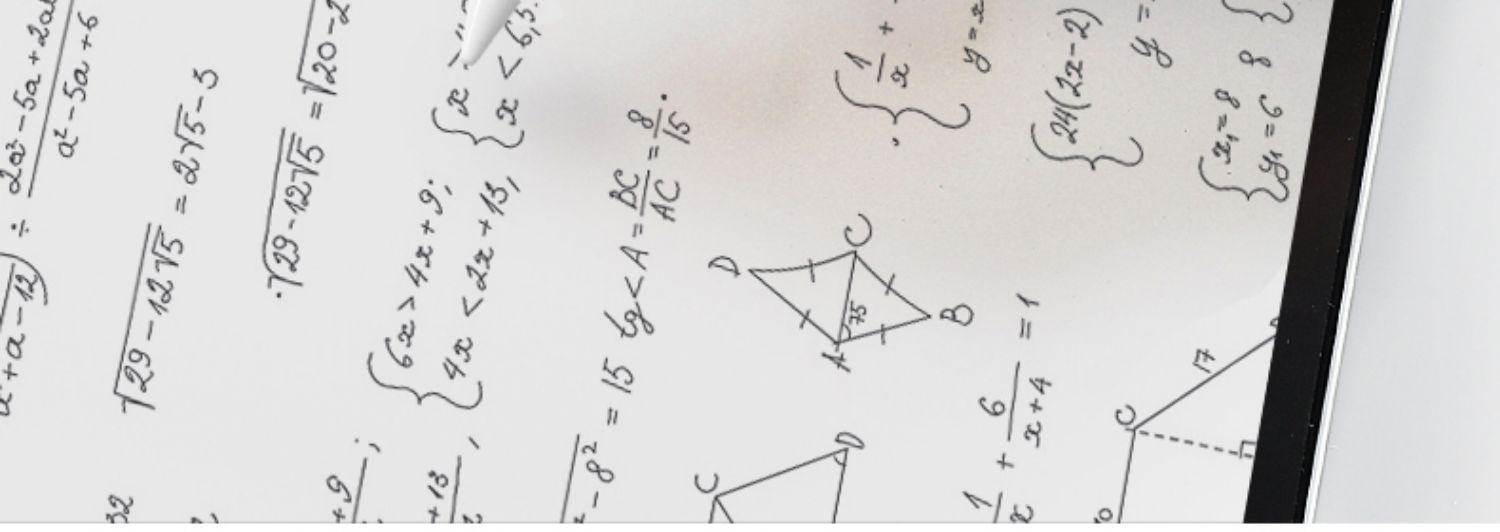 ² + a - 12) ÷ 2a² - 5a + 2a
a² - 5a + 6
√29 - 12√5 = 2√5 - 3
· √29 - 12√5 = √20 - 2
32
+ 9 ;
+ 13 ,
{ 6x > 4x + 9; { x
{ 4x < 2x + 13, { x < 6,5
- 8² = 15 tg < A = BC/AC = 8/15 .
C
D
D
C
A
75
B
1/x + 6/(x + 4) = 1
{ 1/x +
y = x
{ 24(2x - 2)
y =
{ x₁ = 8
y₁ = 6 8 {
C
17